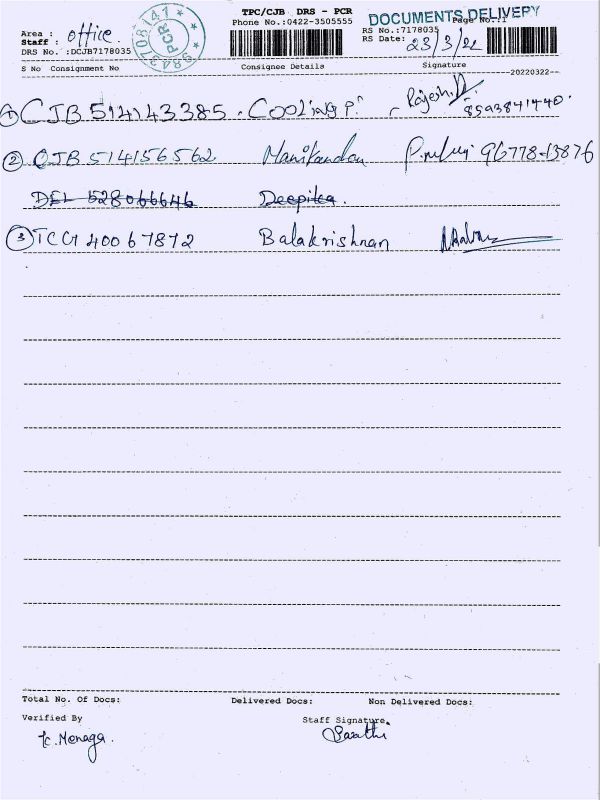 TPC/CJB DRS - PCR
DOCUMENTS DELIVERY
Page No.:1
Phone No.:0422-3505555
RS No.:7178035
Area : office.
Staff :
RS Date: 23/3/22
DRS No. :DCJB7178035
9843708147
PCR
S No Consignment No Consignee Details Signature
20220322
① CJB 514143385. Cooling P. Rajesh.
8593841440.
② CJB 514156562 Manikandan 96778-13876
DEL 528066646 Deepika.
③ TCG 40067872 Balakrishnan
Total No. Of Docs: Delivered Docs: Non Delivered Docs:
Verified By Staff Signature
K. Menaga. Sasathi